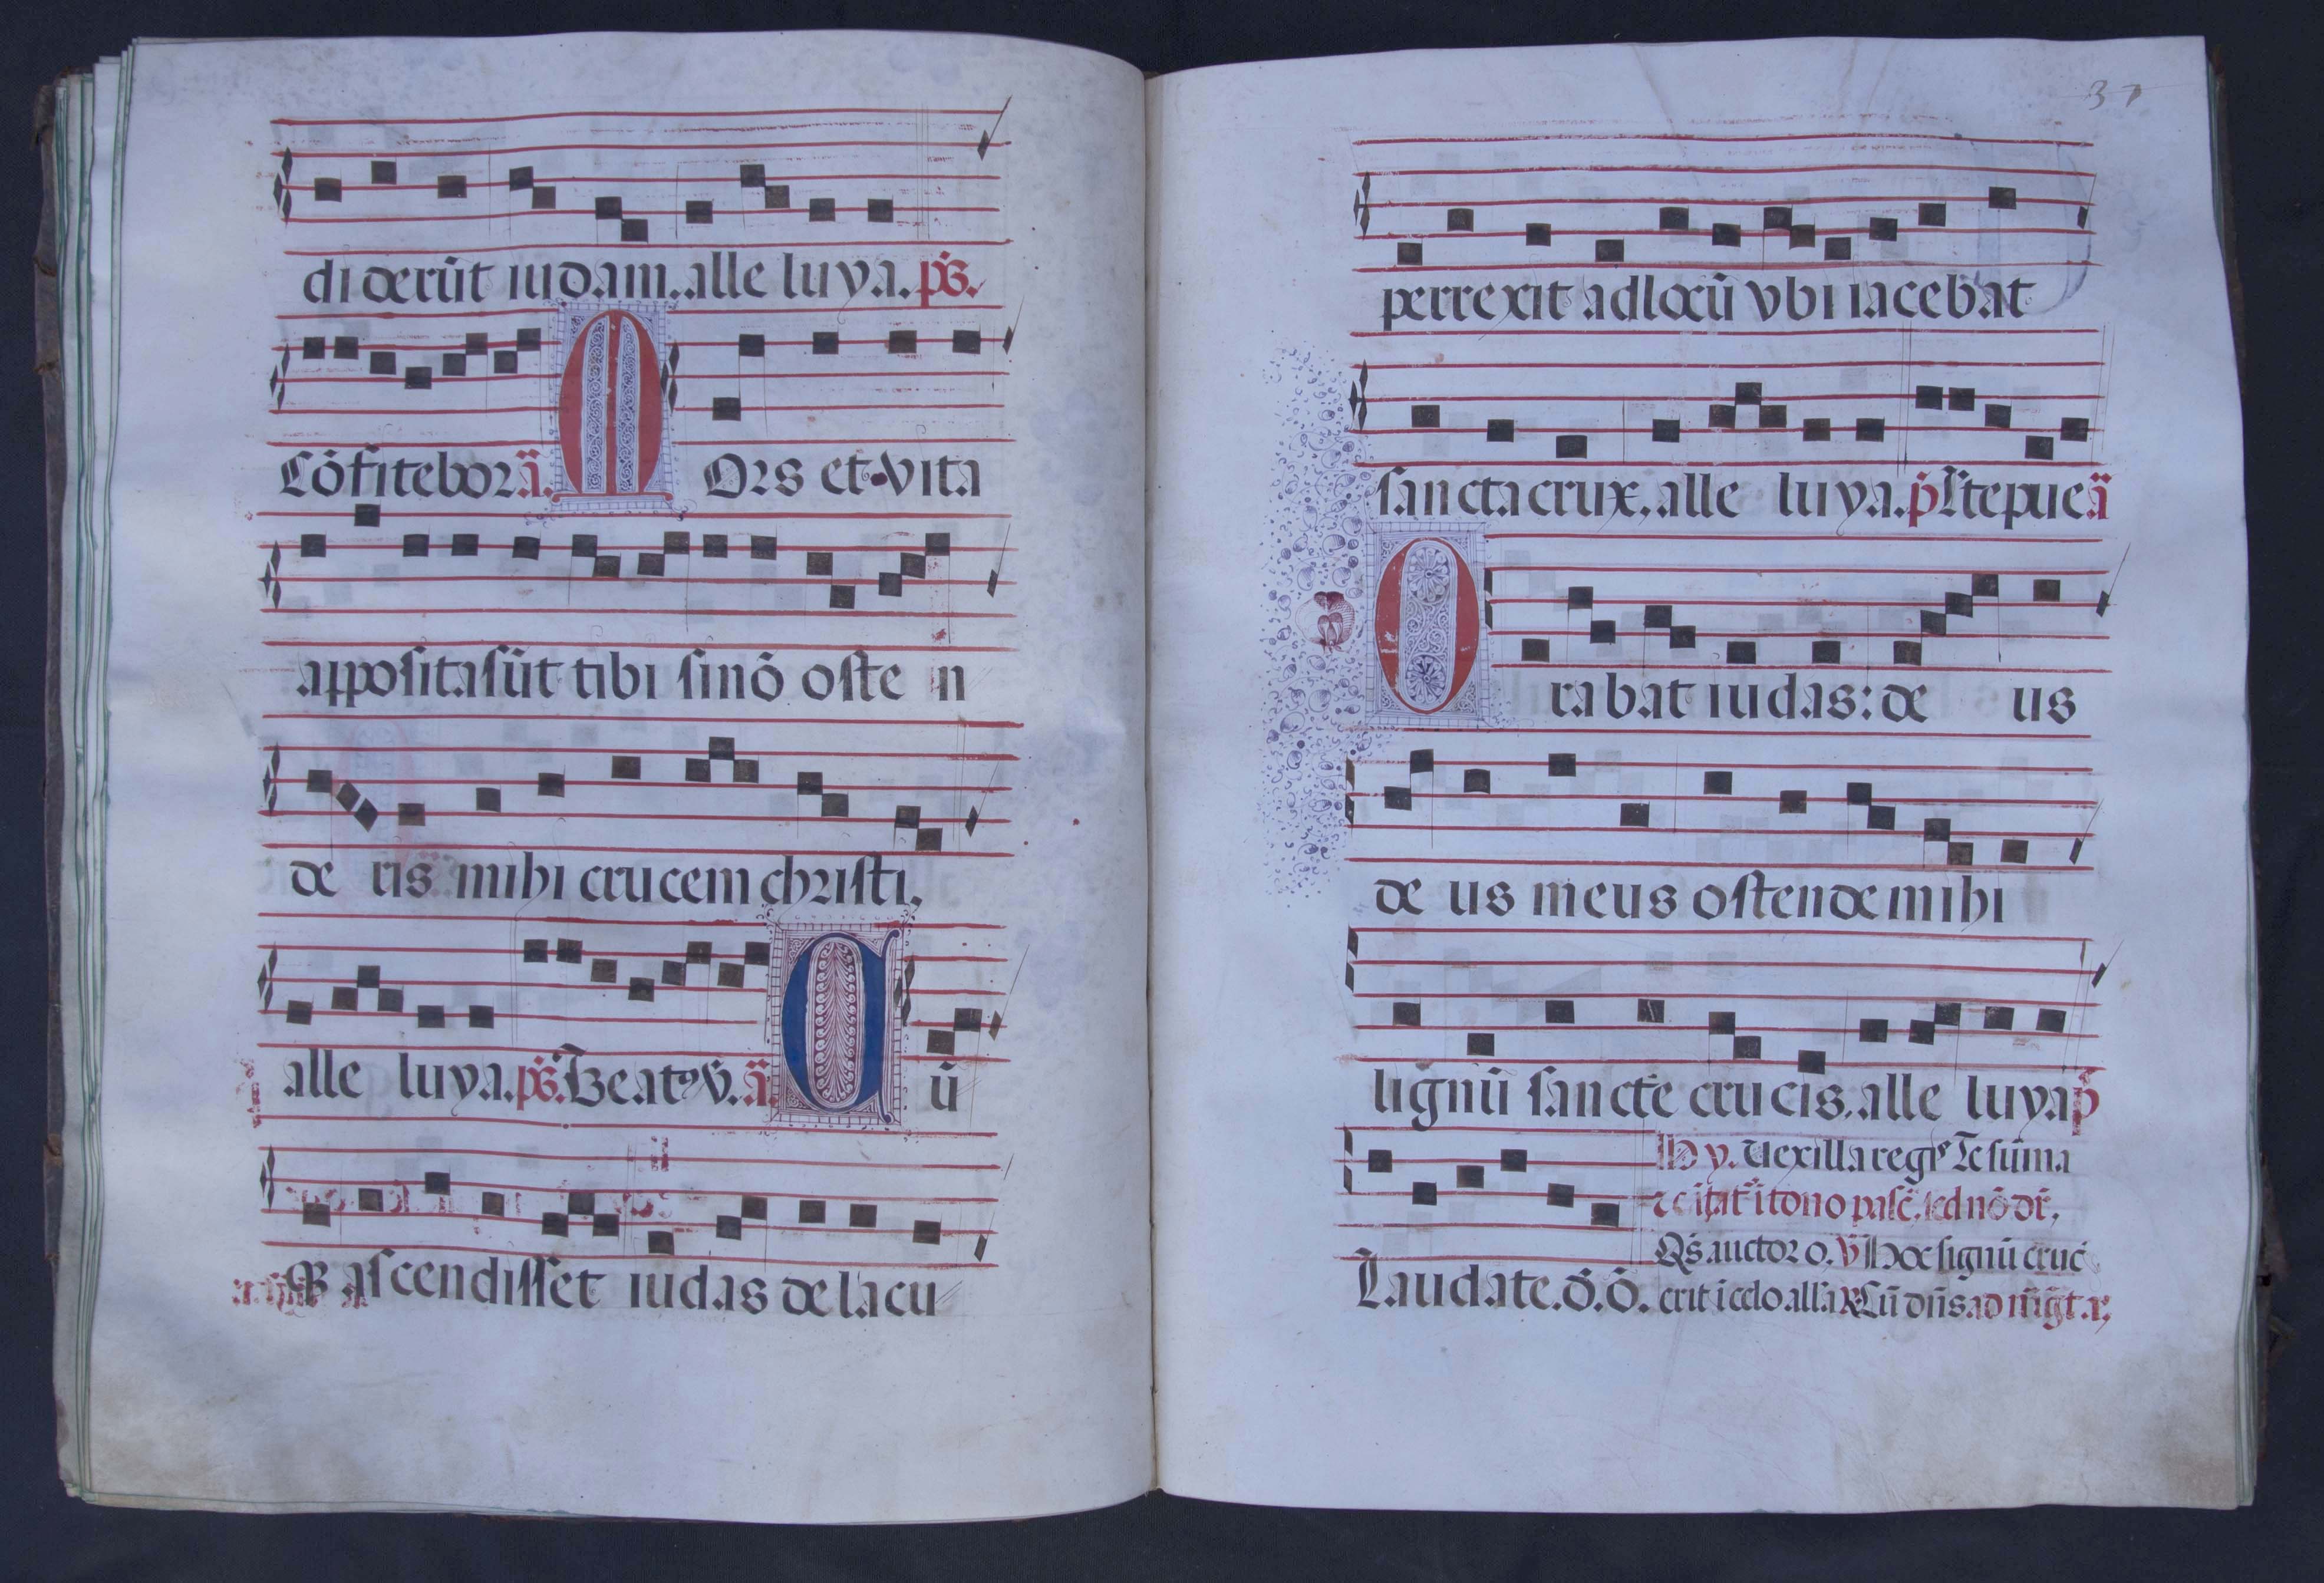 diderūt iudam. alle luya. ps̄.
Cōfitebor ā. MOrs et vita
apposita sūt tibi si nō oste n
de ris mihi crucem christi.
alle luya. ps̄. Beatꝰ v̄. ā. Cū
ascendisset iudas de lacu
37
perrexit ad locū vbi iacebat
sancta crux. alle luya. p̄s̄ Lauda te pue ā
Orabat iudas: de us
de us meus ostende mihi
lignū sancte crucis. alle luya p̄
Hy. Uexilla regꝭ
Laudate. ō. ō.
Qs̄ auctor o. v̄ Hoc signū cruc̄
erit i celo. all'a R Cū dn̄s. ad